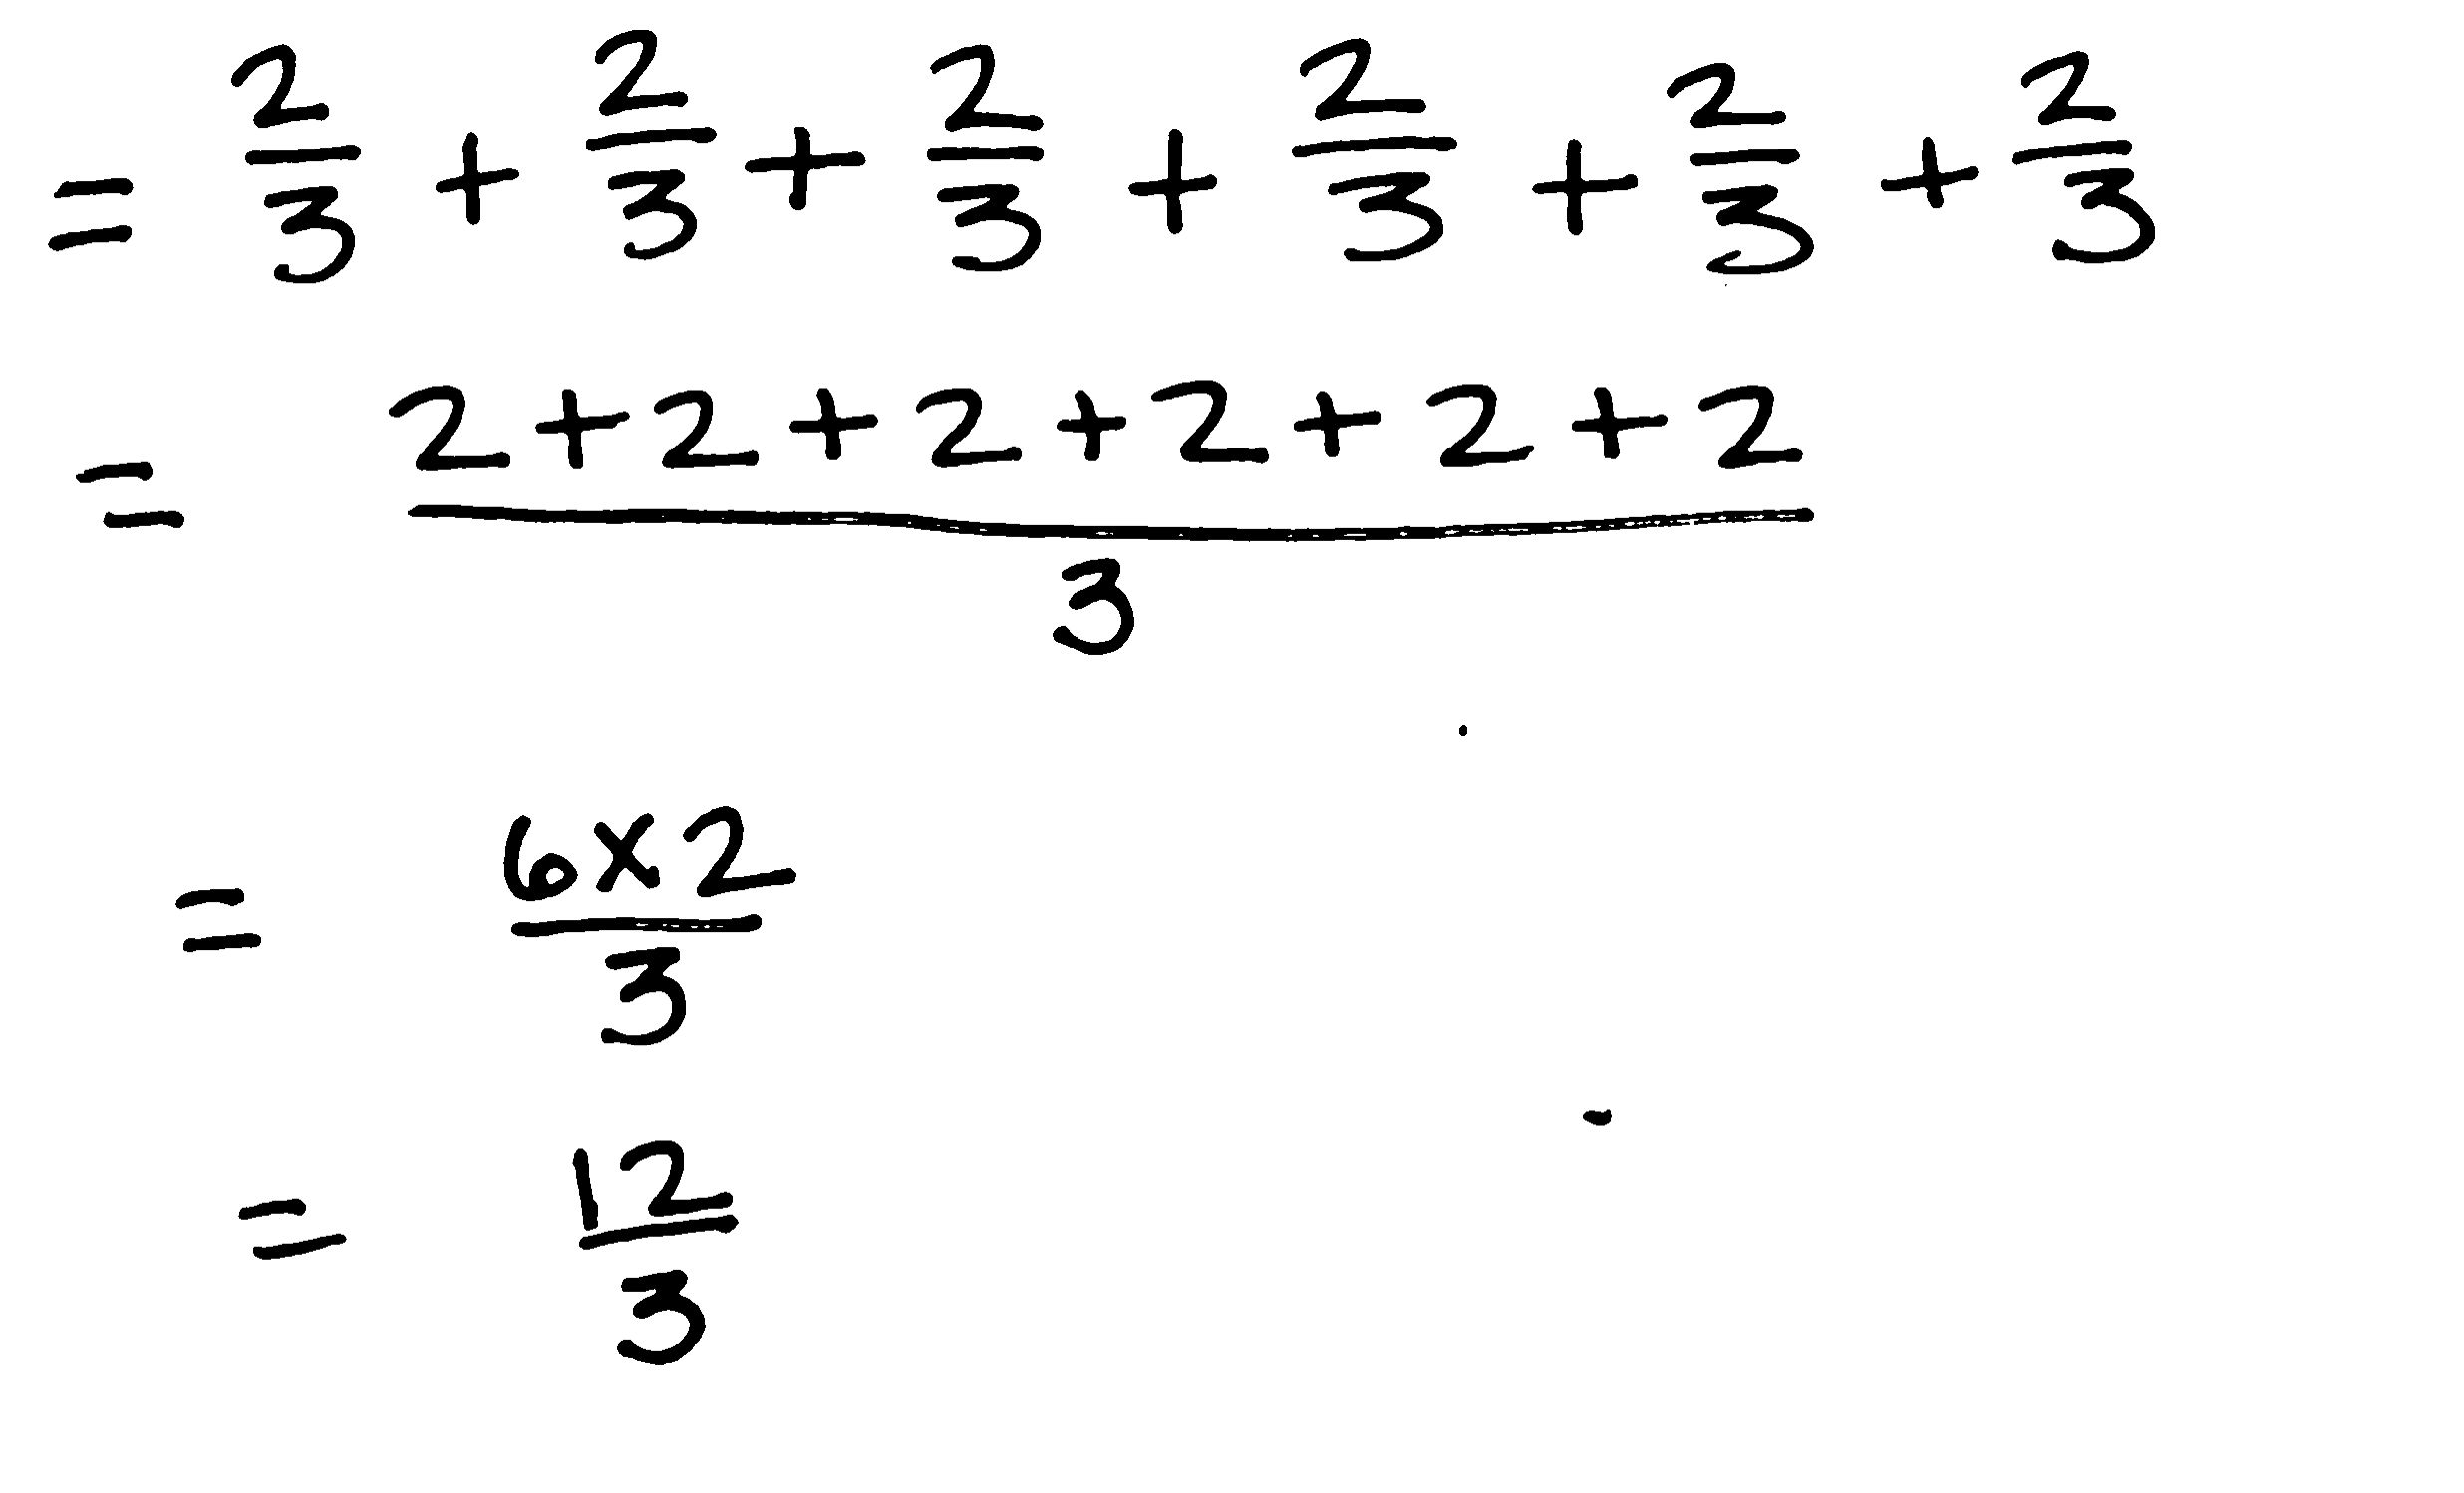 = 2/3 + 2/3 + 2/3 + 2/3 + 2/3 + 2/3
= (2+2+2+2+2+2)/3
= (6×2)/3
= 12/3